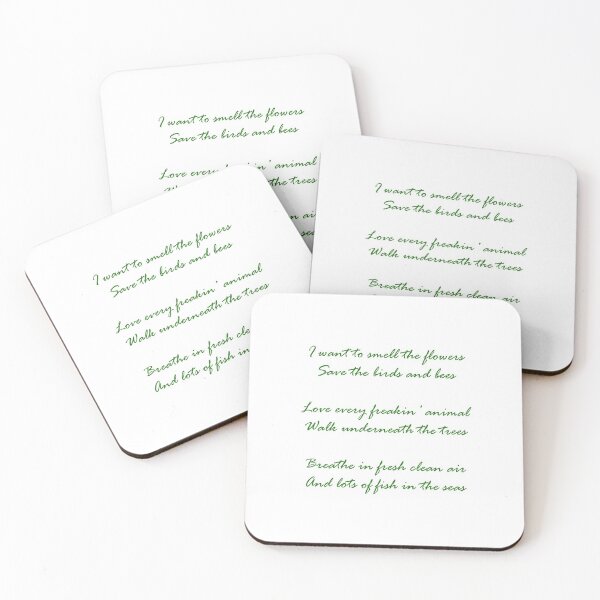 I want to smell the flowers
Save the birds and bees
Love every freakin' animal
the trees
air
I want to smell the flowers
Save the birds and bees
Love every freakin' animal
Walk underneath the trees
Breathe in fresh clean air
I want to smell the flowers
Save the birds and bees
Love every freakin' animal
Walk underneath the trees
Breathe in fresh
And lots of fish in
I want to smell the flowers
Save the birds and bees
Love every freakin' animal
Walk underneath the trees
Breathe in fresh clean air
And lots of fish in the seas